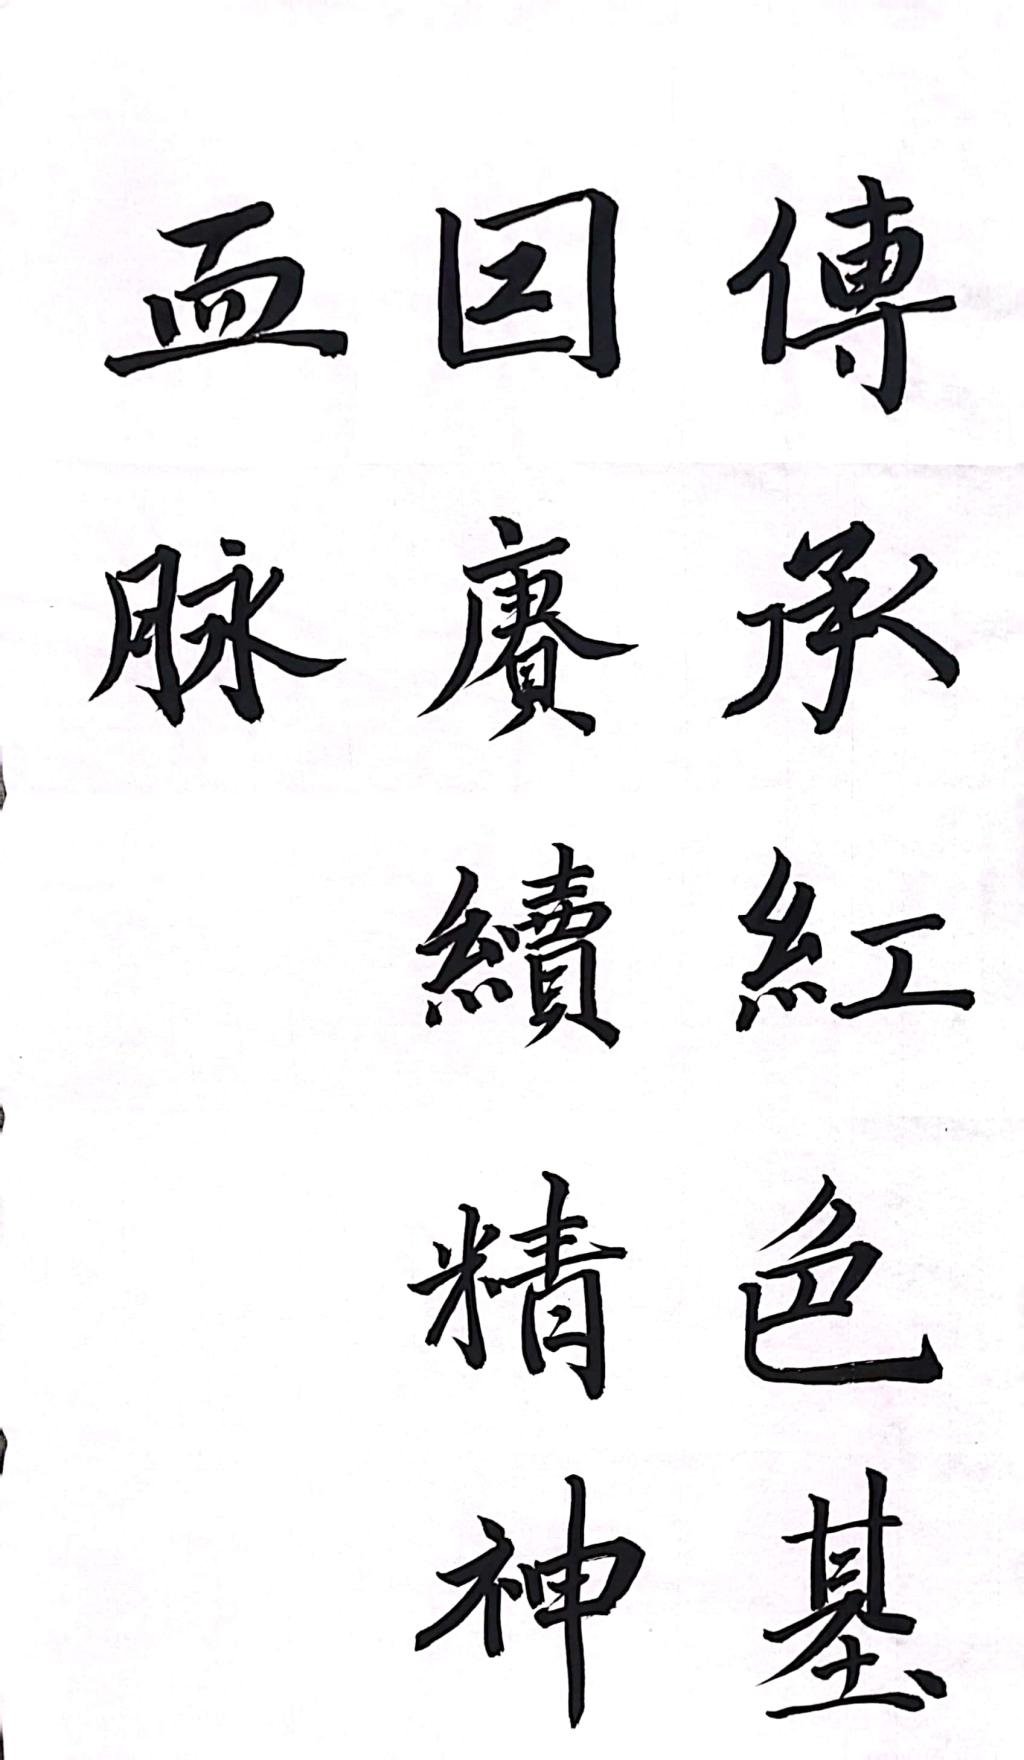 傳承紅色基
囙賡續精神
血脉